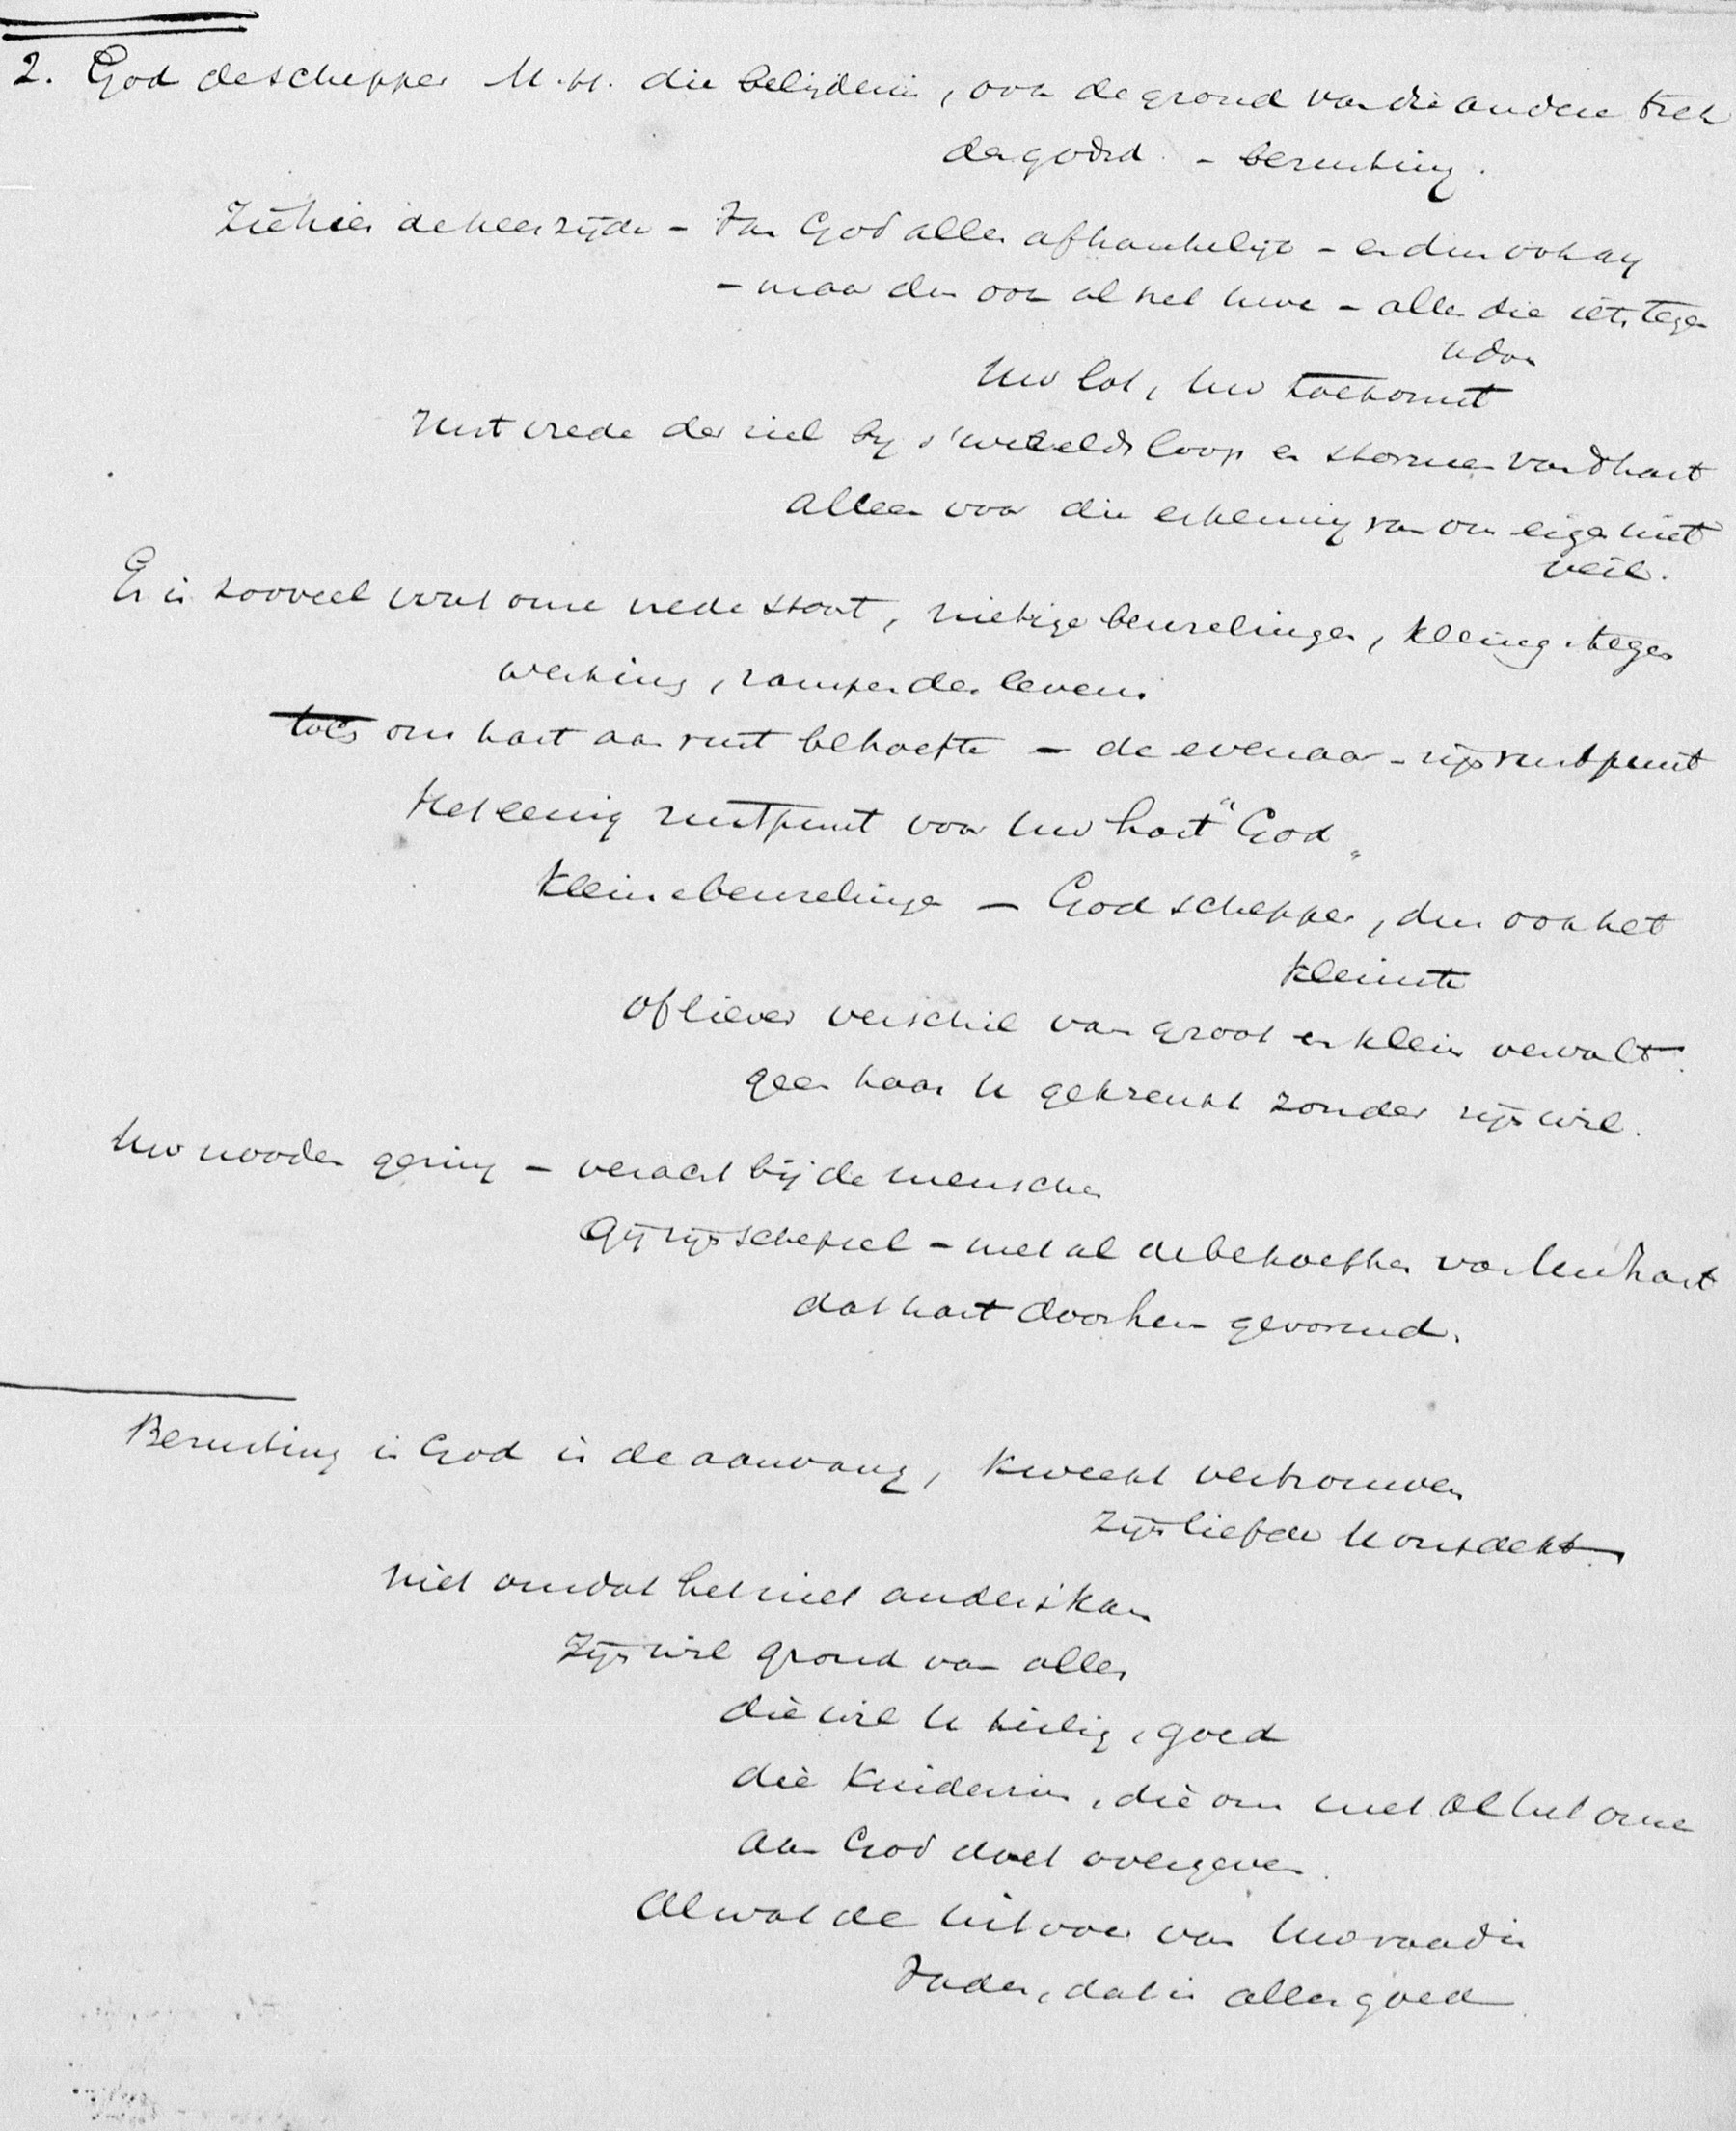 2. God de schepper M.H. die belijdenis, ook de grond van die andere trek
der godsd. - berusting.
Ziehier de keerzijde - Van God alles afhankelijk - en dus ook gij
- maar dus ook al het uwe - alles die iets tegen
u doen
Uw lot, Uw toekomst
Rust vrede der ziel bij 's werelds loop en stormen van 't hart
alleen voor die erkenning van ons eigen niet
veil.
Er is zooveel wat onze vrede stoort, nietige beuzelingen, kleine tegen
werking, rampen des levens
toch ons hart aan rust behoefte - de evenaar - zijn rustpunt
Het eenig rustpunt voor Uw hart "God"
Kleine beuzelingen - God schepper, dus ook het
kleinste
of liever verschil van groot en klein vervalt.
geen haar U gekrenkt zonder zijn wil.
Uw nooden gering - veracht bij de menschen
Gij zijn schepsel - met al de behoeften van Uw hart
dat hart door hem gevormd.
Berusting in God is de aanvang, kweekt vertrouwen
Zijn liefde U ontdekt
niet omdat het niet anders kan
Zijn wil grond van alles
die wil U heilig, goed
die kinderzin, die ons met al het onze
aan God doet overgeven.
Al wat de uitvoer van Uw raad is
Vader, dat is alles goed